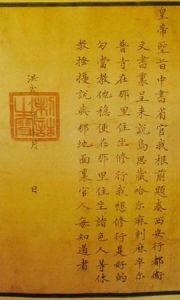 皇帝聖旨中書省官我根前題奏西安行都衛
文書裏呈來說烏思藏哈尔麻剌麻卒尔
普寺在那里住坐修行我想修行是好的
勾當教他穩便在那里住坐諸色人等休
教搔擾說與那地面裏官人每知道者
洪武 月 日